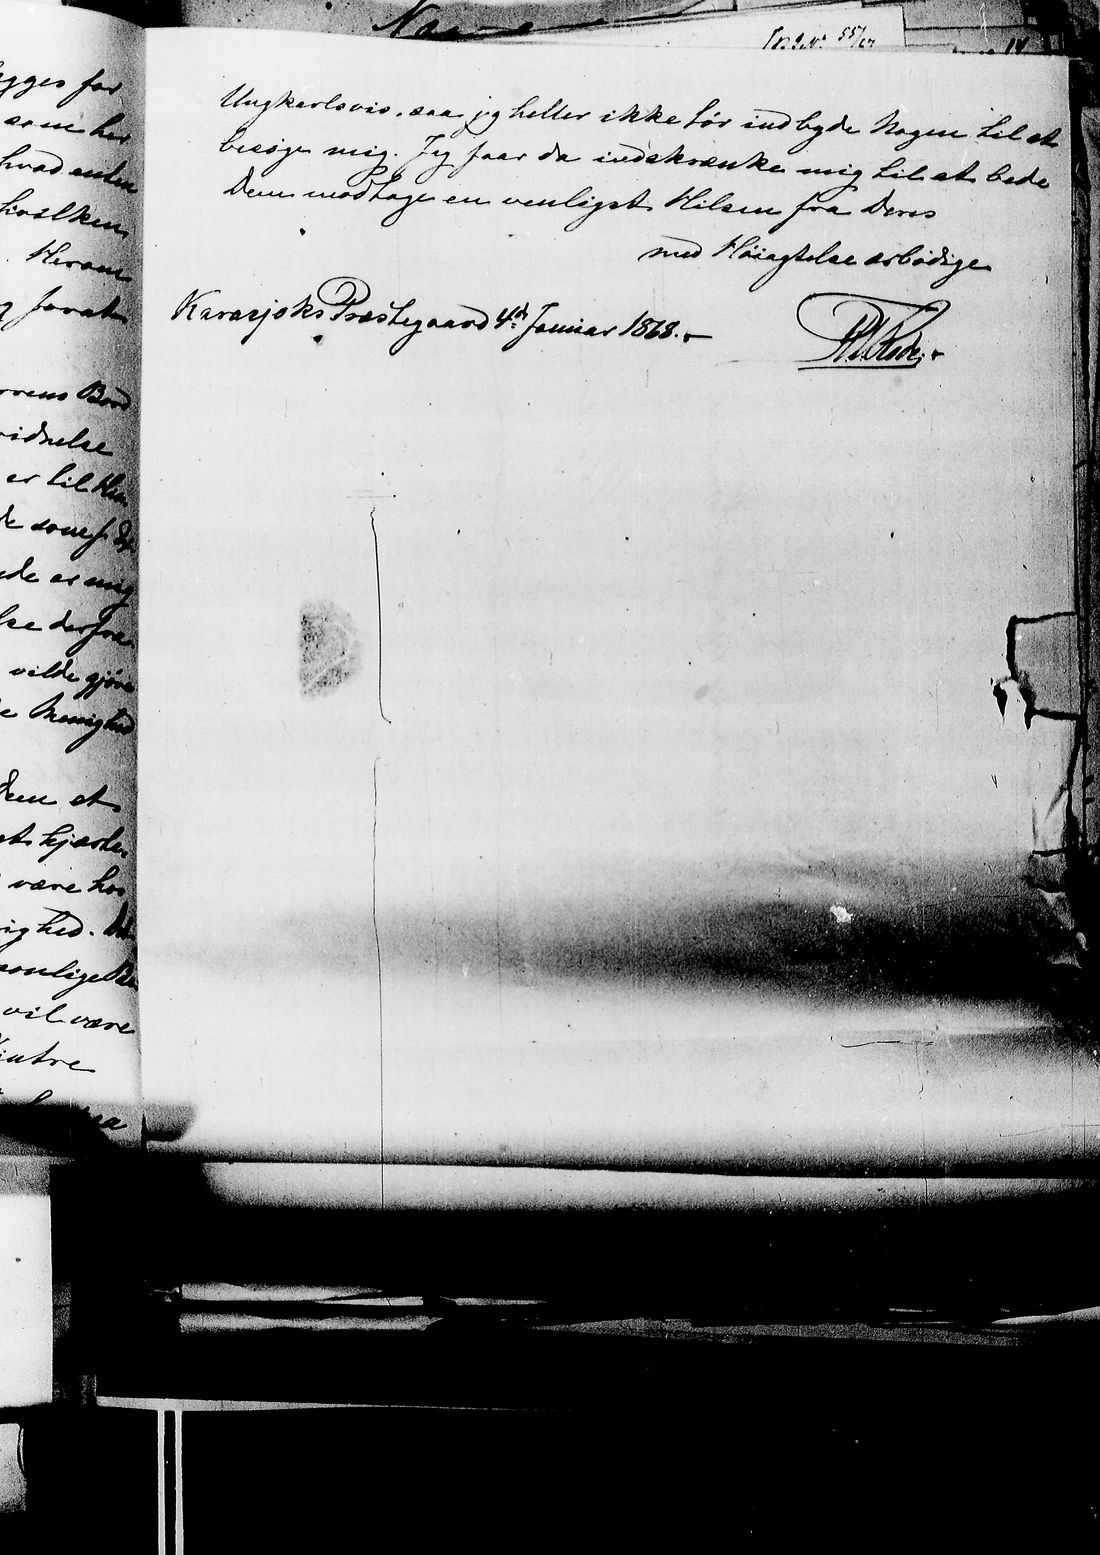 Ungkarlsvis, saa jeg heller ikke tør indbyde Nogen til at
besøge mig. Jeg faar da indskrænke mig til at bede
Dem modtage en venligst Hilsen fra Deres
med Høiagtelse ærbødige
Karasjoks Præstegaard 4de Januar 1868.
ygges for
som her
hvad enten
hvilken
Herom
g forat
Bord
vidnelse
er til
de
ede er mig
lse derfra
vilde gjøre
e Menighed
Dem et
at hjerte
være hos
righed.
sonlige
vil være
intre